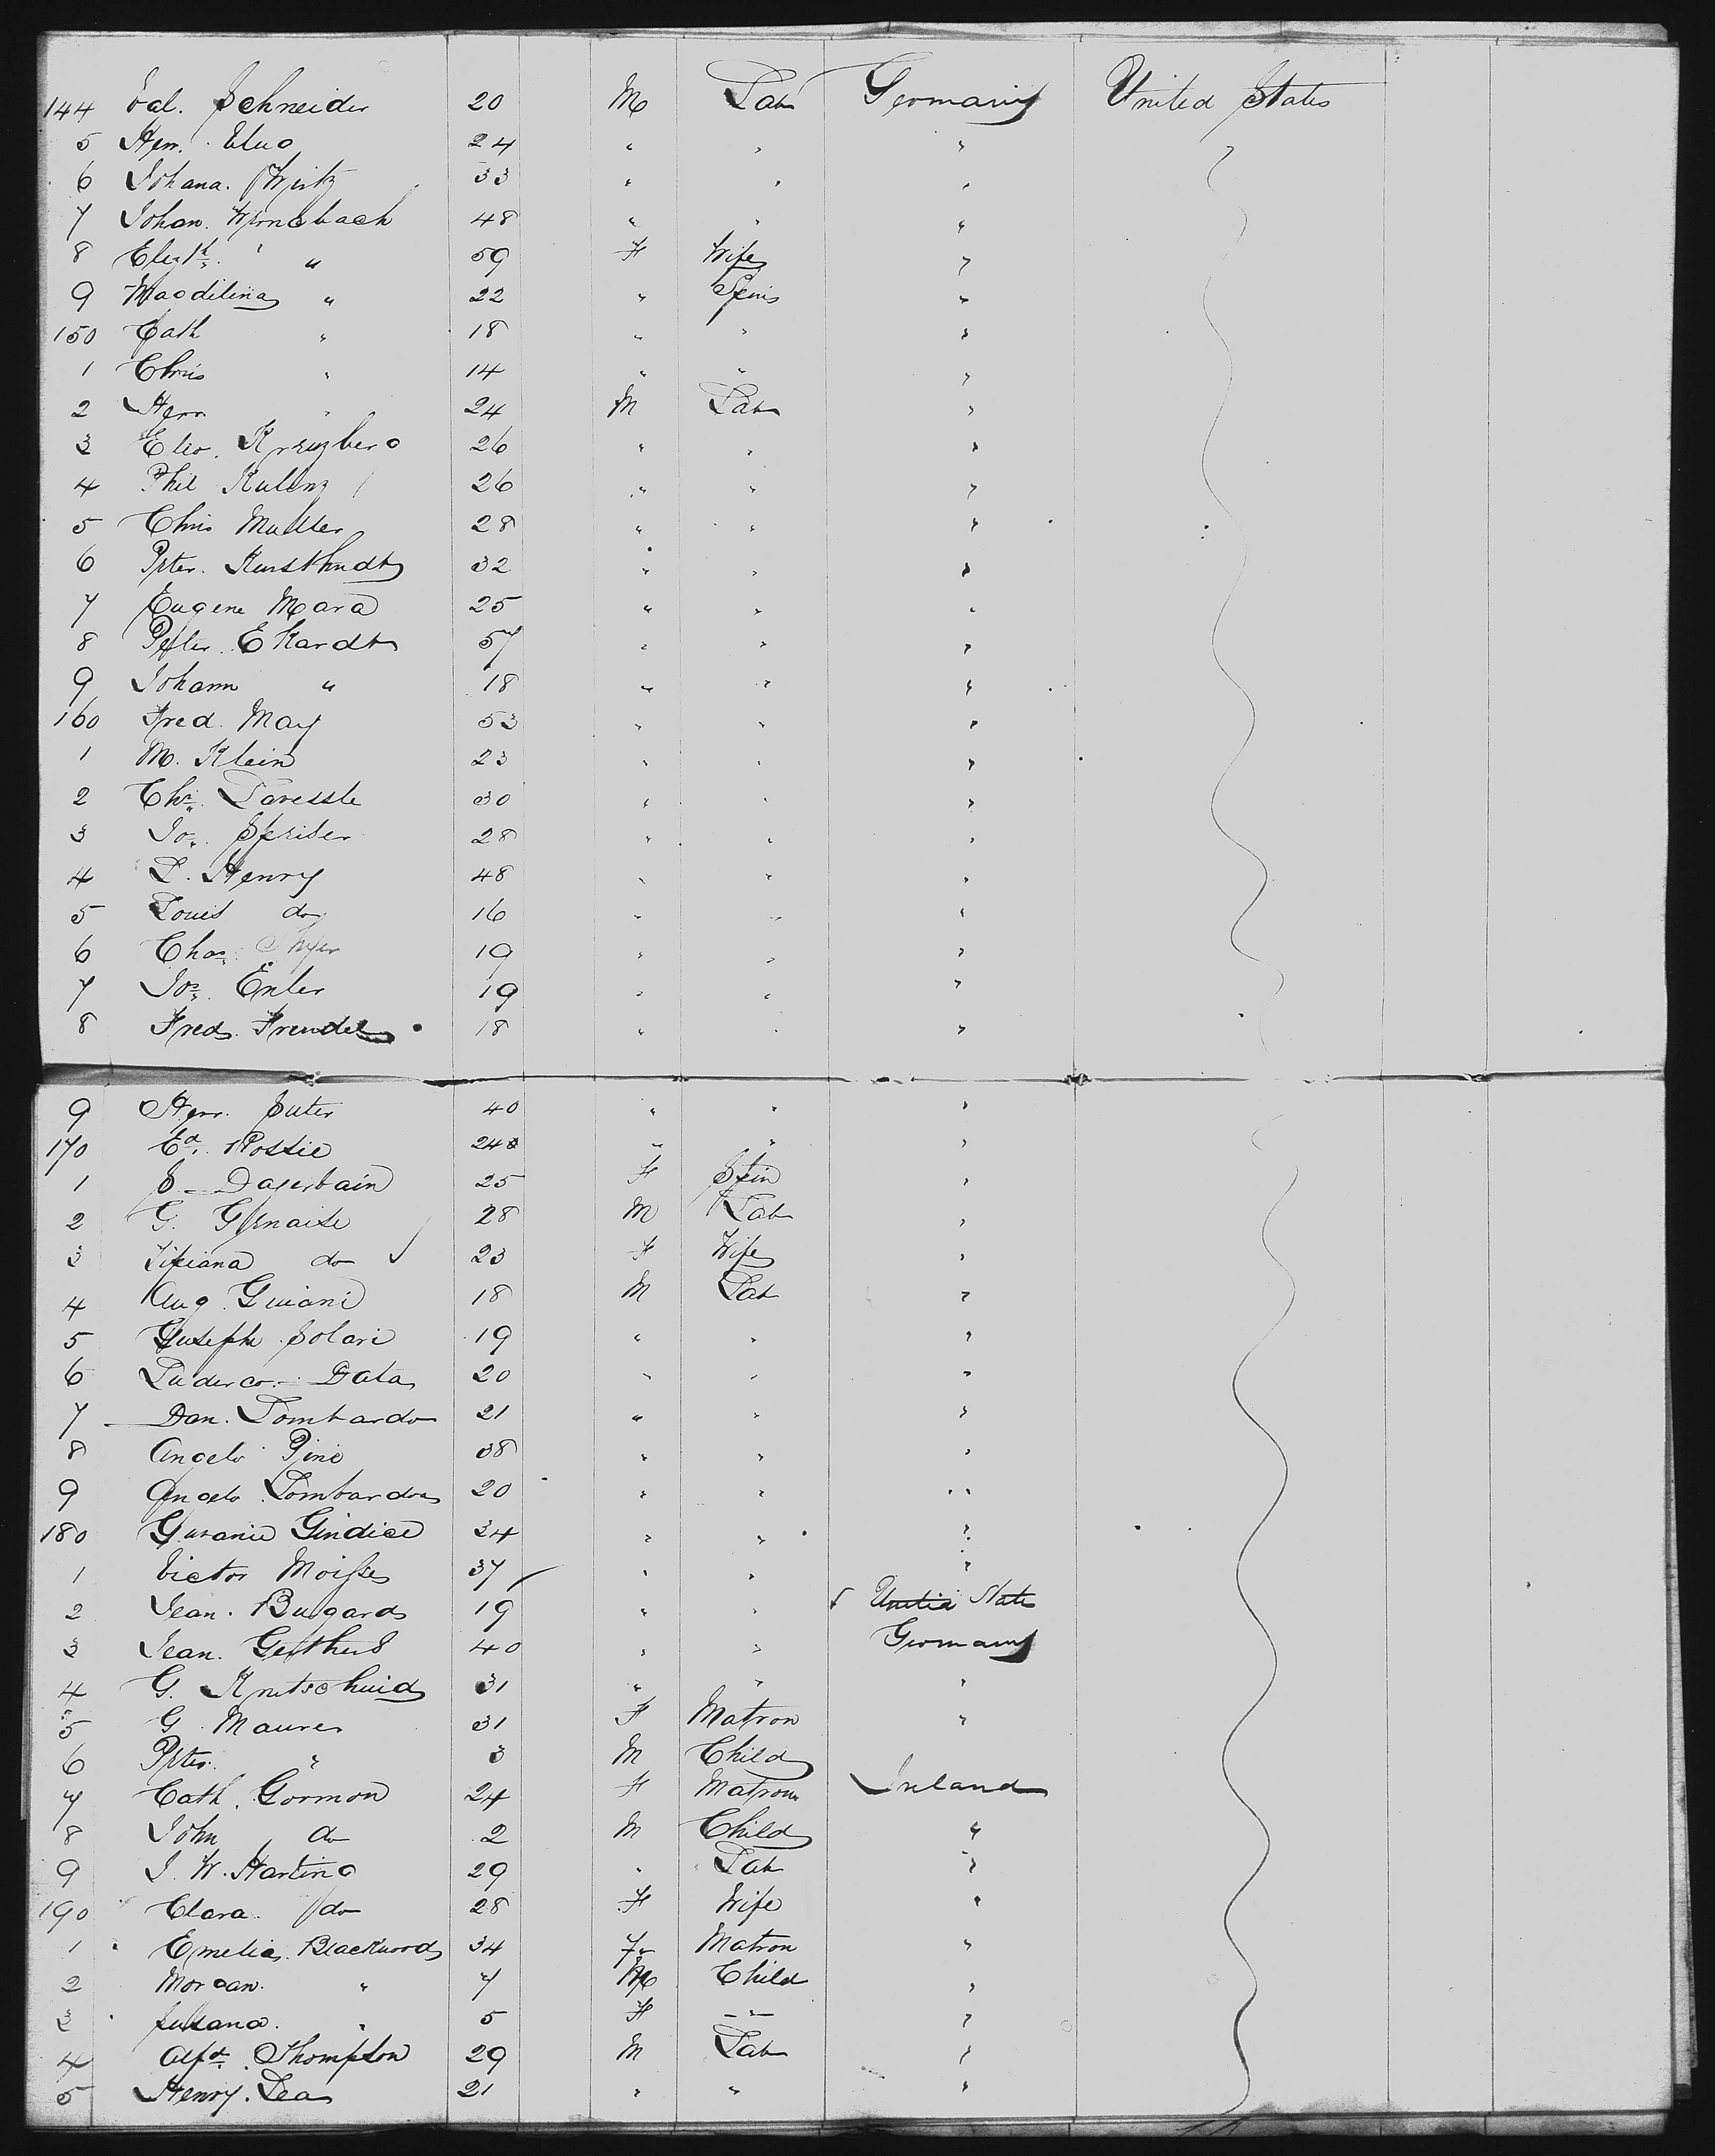 144 Val. Schneider 20 M Lab Germany United States
5 Hen. 24 " " "
6 Johana. 33 " " "
7 Johan. 48 " " "
8 Elizth. " 59 F Wife "
9 Magdilina " 22 " Spins "
150 Cath " 18 " " "
1 Chris " 14 " " "
2 Henr " 24 M Lab "
3 Kreuzberg 26 " " "
4 Phil Kulenz 26 " " "
5 Chris Muller 28 " " "
6 Peter. 32 " " "
7 Eugene Mara 25 " " "
8 Peter. Ekardt 57 " " "
9 Johann " 18 " " "
160 Fred. May 53 " " "
1 M. Klein 23 " " "
2 Chs. 30 " " "
3 Jos. 28 " " "
4 L. Henry 48 " " "
5 Louis do 16 " " "
6 Chas. 19 " " "
7 Jos. Enler 19 " " "
8 Fred. Frendel 18 " " "
9 Henr. Suter 40 " " "
170 Ed. 24 " " "
1 S. 25 F Spin "
2 G. 28 M Lab "
3 do 23 F Wife "
4 Aug. 18 M Lab "
5 Guseppe Solari 19 " " "
6 Data 20 " " "
7 Dan. Lombardo 21 " " "
8 Angelo Pine 38 " " "
9 Angelo Lombardo 20 " " "
180 Giudice 34 " " "
1 Victor 37 " " "
2 Jean. 19 " " United States
3 Jean. 40 " " Germany
4 G. 31 " " "
5 G. Maurer 31 F Matron "
6 Peter. " 3 M Child
7 Cath. Gormon 24 F Matron Ireland
8 John do 2 M Child "
9 J. W. Harting 29 " Lab "
190 Clara. do 28 F Wife "
1 Emelia. Blackwood 34 F Matron "
2 Morgan. " 7 M Child "
3 Susana. " 5 F — " — "
4 Alfd. Thompson 29 M Lab "
5 Henry. Lea 21 " " "